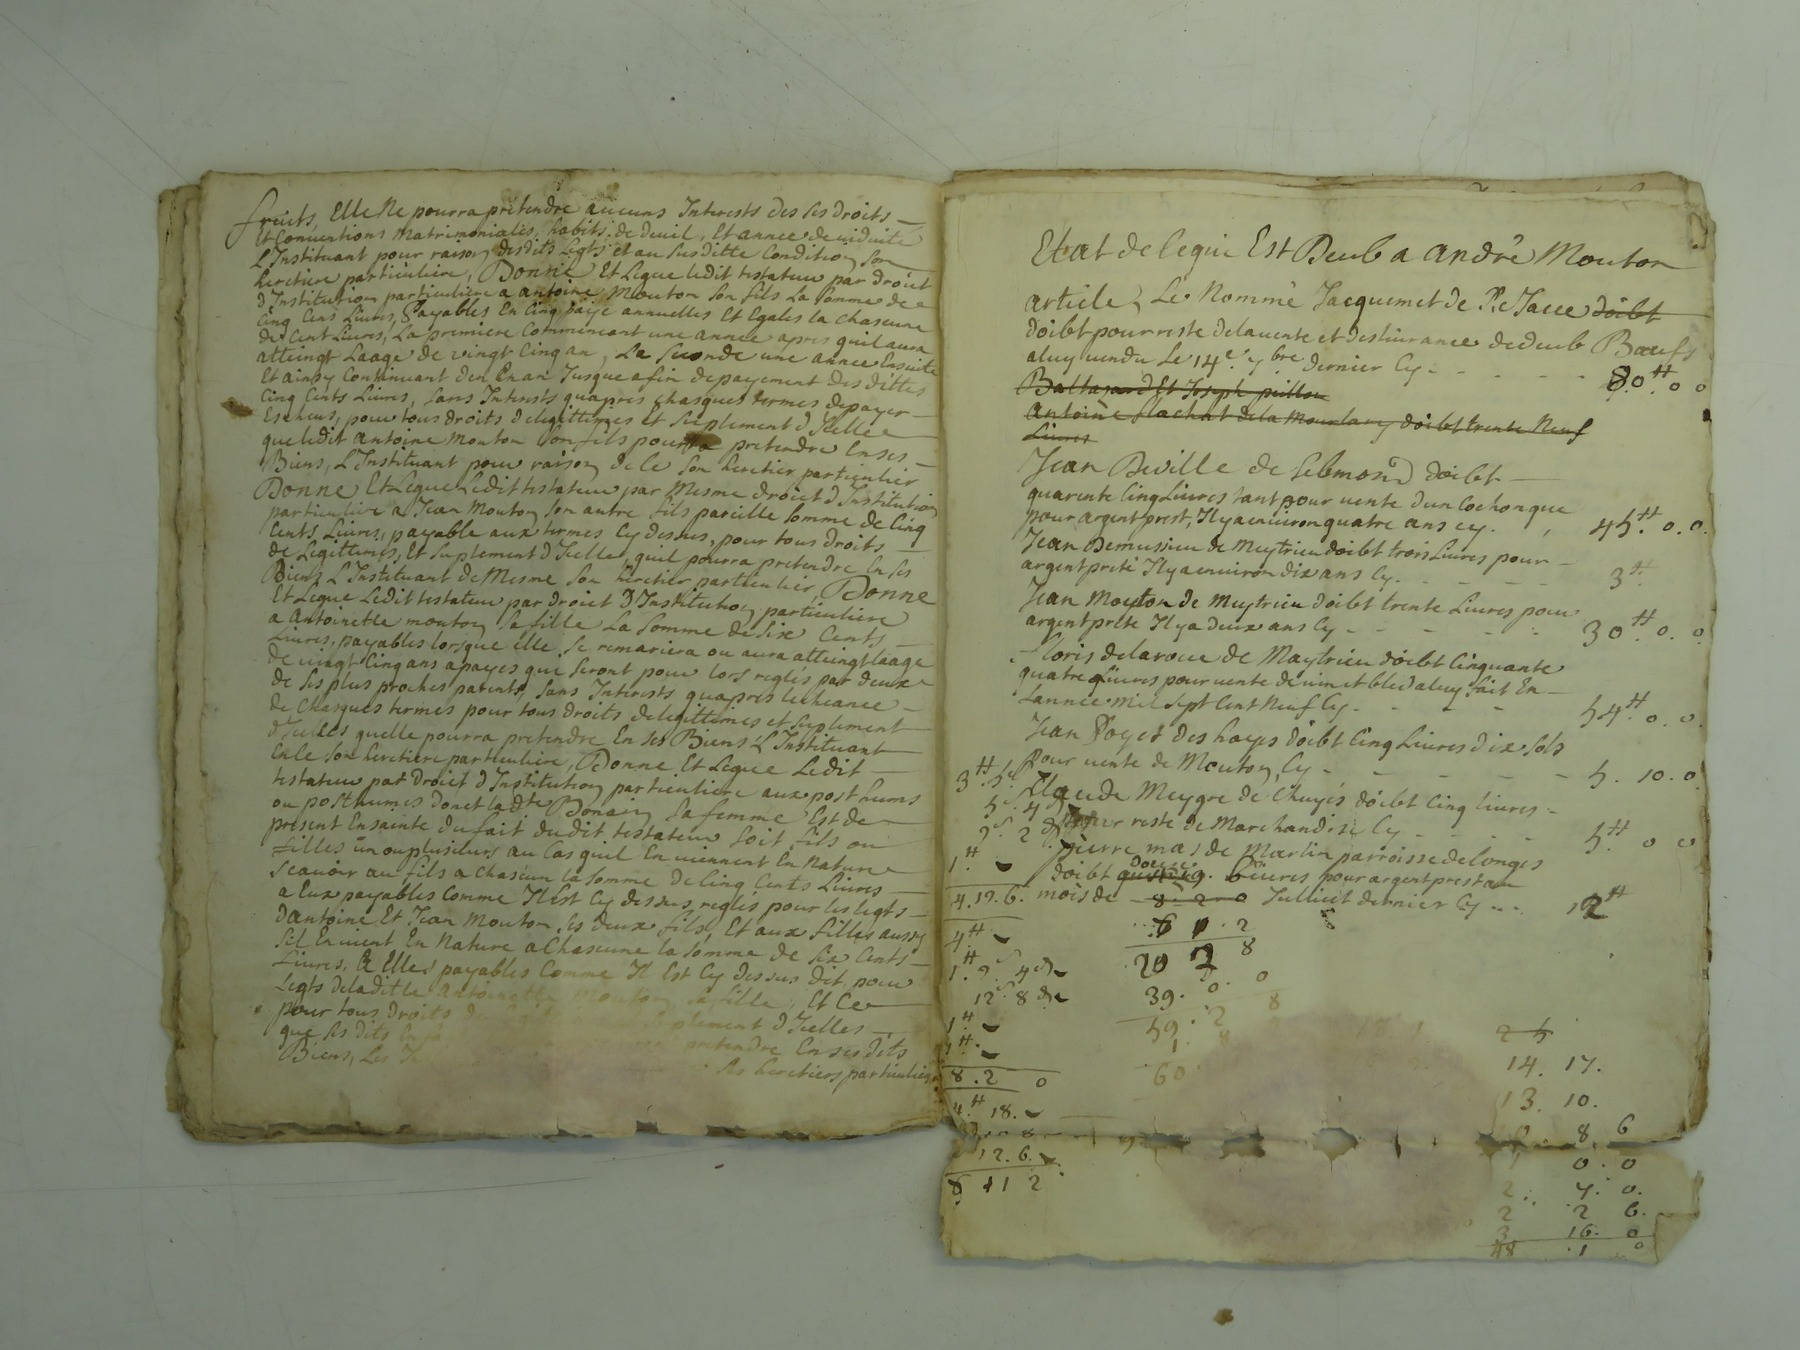 fruits, Elle Ne pourra pretendre aucuns Interests des ses droits
Et Conventions Matrimoniales, habits de deuil, Et annee de viduite
L'Instituant pour raison desdits Legts et au susditte Condition son
heretiere particuliere, Donne Et Legue ledit testateur par droit
d'Institution particuliere a antoine Mouton son fils La somme de
Cinq Cens Livres, payables En Cinq paye annuelles Et Egales la chascune
de Cent Livres, La premiere Commencant une annee apres quil aura
atteingt Laage de vingt Cinq an, La seconde une annee Ensuite
Et ainsy Continuant den En an Jusque a fin de payement des dittes
Cinq Cents Livres, sans Interests quapres chasques termes de payer
Escheus, pour tous droits de legittimes Et suplement d'Icelle
que ledit antoine Mouton son fils pourra pretendre En ses
Biens, L'Instituant pour raison de ce son heretier particulier
Donne Et Legue Ledit testateur par Mesme droict d'Institution
particuliere a Jean Mouton son autre fils pareille somme de Cinq
Cents Livres, payable aux termes Cy dessus, pour tous droits
de Legittimes, Et suplement d'Icelle, quil pourra pretendre En ses
Biens L'Instituant de Mesme son heretier particulier, Donne
Et Legue Ledit testateur par droict D'Institution particuliere
a Antoinette mouton sa fille La somme de six Cents
Livres, payables lorsque elle se remariera ou aura atteingt laage
de vingt Cinq ans a payes qui seront pour lors regles par deux
de ses plus proches parents, sans Interests quapres lecheance
de chasques termes pour tous droits de legittimes et suplement
d'Icelles quelle pourra pretendre En ses Biens L'Instituant
En ce son heretiere particuliere, Donne Et Legue Ledit
testateur par Droict d'Institution particuliere aux posthums
ou posthumes donct la dte Bonain sa femme Est de
present Ensainte du fait dudit testateur soit fils ou
filles un ou plusieurs au Cas quil En viennent En Nature
scavoir au fils a chascun la somme de Cinq Cents Livres
a Eux payables Comme Il Est Cy dessus regles pour les legts
d'antoine Et Jean Mouton ses deux fils, Et aux filles aussy
sil En vient En Nature a Chascune la somme de six Cents
Livres, a Elles payables Comme Il Est Cy dessus dit, pour
Legts de laditte antoinette Mouton sa fille, Et Ce
pour tous droits de suplement d'Icelles
que ses dits pretendre En ses dits
Biens, Les
ses heretiers particuliers
Etat de ce qui Est Deub a andré Mouton
article, Le Nommé Jacquemet de doibt
doibt pour reste de la vente et deslivrance de deub Bœufs
a luy vendu Le 14e 7bre dernier Cy - 80.# 0 0
Baltazard Et Joseph
antoine flachat de la doibt trente Neuf
Livres
Jean Deville de doibt
quarente Cinq Livres tant pour vente d'un Cochon que
pour argent prest, Il y a environ quatre ans cy. 45.# 0. 0.
Jean Demussieu de Meytrieu doibt trois Livres pour
argent preté Il y a environ dix ans Cy. 3#
Jean Mouton de Meytrieu doibt trente Livres pour
argent preté Il y a deux ans Cy 30.# 0. 0.
floris delaroue de Maytrieu doibt Cinquante
quatre Livres pour vente de vin et bled a luy fait En
Lannée Mil sept Cent Neuf Cy. 54.# 0. 0.
Jean des hayes doibt Cinq Livres dix sols
pour vente de Mouton Cy 5. 10. 0
Claude Meygre de Chuyes doibt Cinq livres
pour reste de Marchandise Cy 5# 0 0
pierre mas de Marlin parroisse de longes
doibt douze Livres pour argent prest au
mois de Juillict dernier Cy 12#
3# 5s
5s 4d
2s 2d
1#
4. 12. 6.
4#
1.# 2s 4d
12s 8d
1#
1#
8. 2 0
4.# 18.
12. 6.
8 11 2
8 2 0
6 1. 2
20 2 8
39. 0. 0
59. 2 8
1.
60
2 5
14. 17.
13. 10.
8. 6
0. 0
2. 7. 0.
2 2 6.
3 16. 0
48 1 0